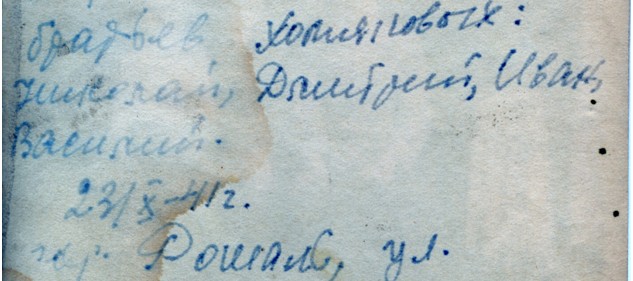 братьев Хомяковых:
Николай, Дмитрий, Иван,
Василий.
23/X-41г.
гор. Рошаль, ул.